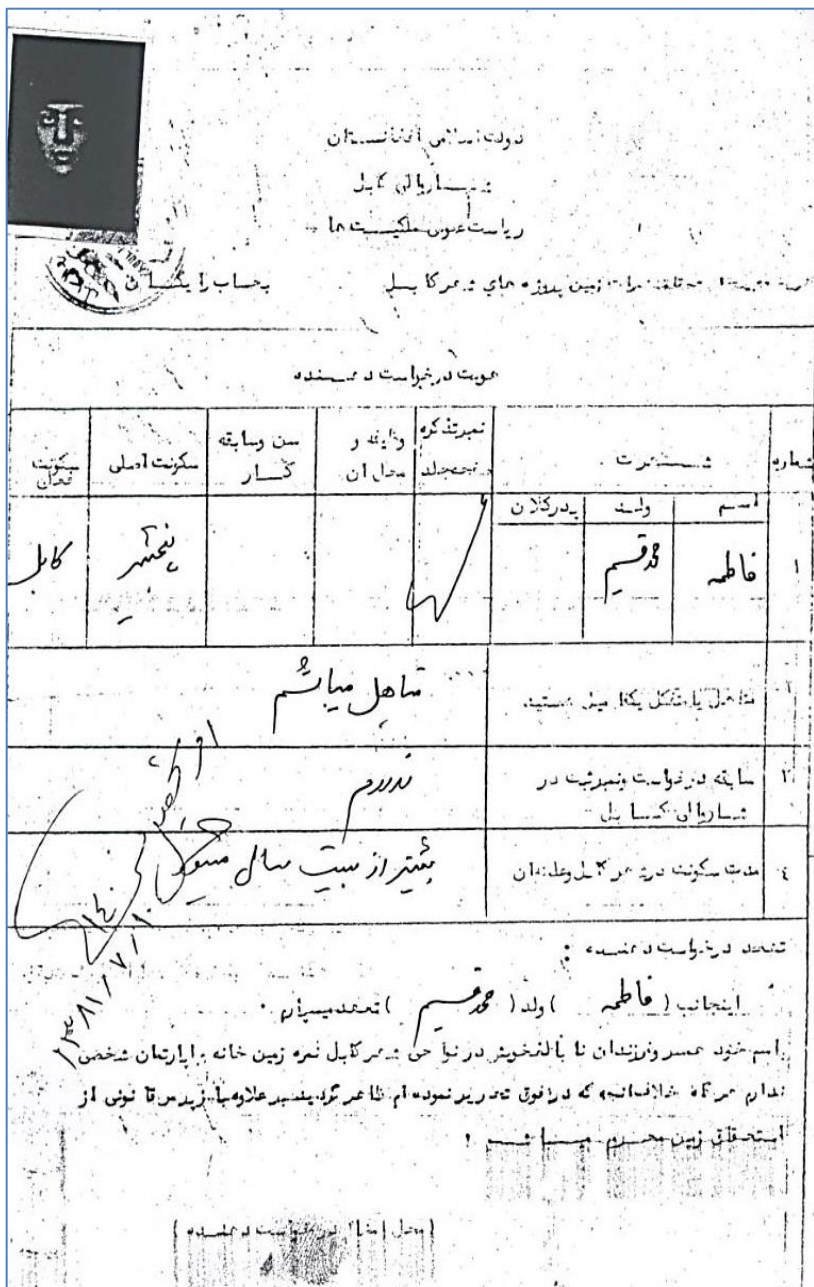 دولت اسلامی افغانستان
شاروالی کابل
ریاست عمومی ملکیت ها
زمین پروژه های شهر کابل بحساب رایگان
هویت درخواست دهنده
شماره شهرت نمبر تذکره وظیفه و محل آن سن و سابقه کار سکونت اصلی سکونت فعلی
اسم ولد پدرکلان
۱ فاطمه محمد قسیم پنجشیر کابل
متاهل میباشم
۳ سابقه درخواست ونمبر ثبت در شاروالی کابل ندارم
۴ مدت سکونت در شهر کابل بیشتر از بیست سال میشود
تعهد درخواست دهنده :
اینجانب ( فاطمه ) ولد ( محمد قسیم ) تعهد میسپارم .
اسم خود همسر وفرزندان نا بالغ خویش در نواحی شهر کابل نمره زمین خانه واپارتمان شخصی
ندارم هر گاه خلاف آنچه که در فوق تحریر نموده ام ظاهر گردید علاوه با زپرس قانونی از
استحقاق زمین محروم میباشم .
( محل امضا درخواست دهنده )
۱۳۸۱/۷/۱۰